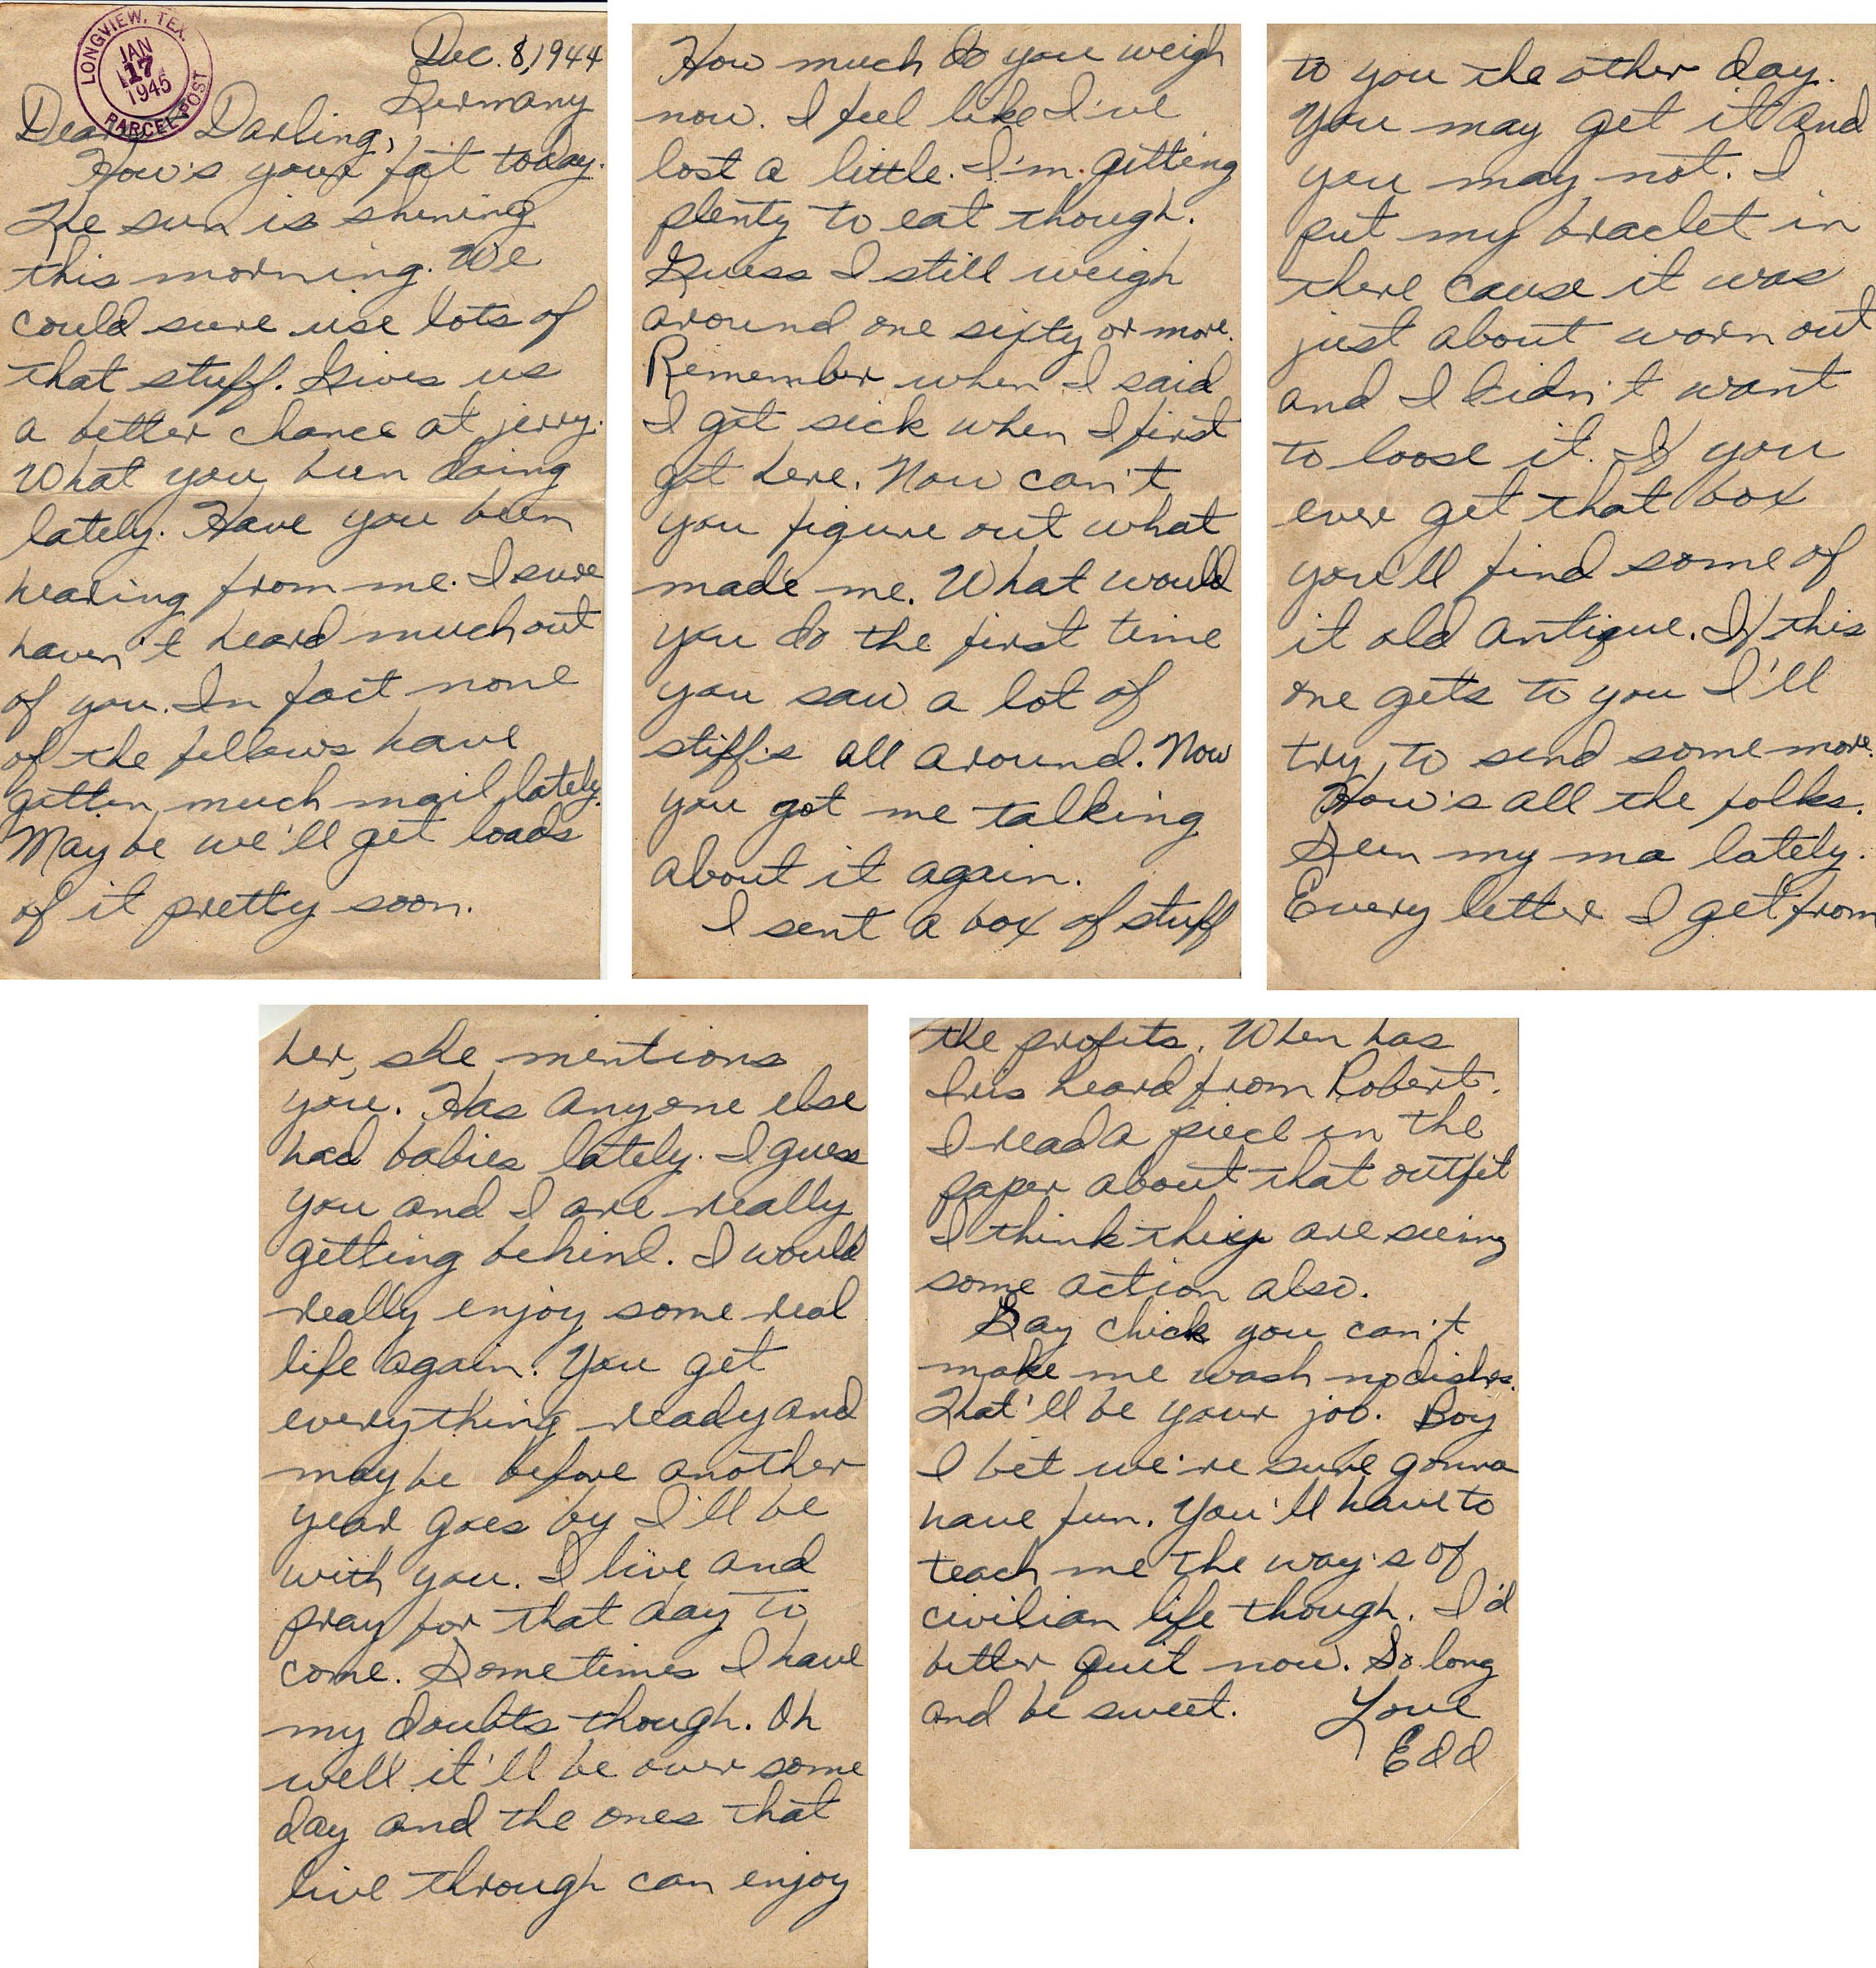 LONGVIEW, TEX.
JAN
17
1945
PARCEL POST
Dec. 8, 1944
Germany
Dear Darling,
How's your fat today.
The sun is shining
this morning. We
could sure use lots of
that stuff. Gives us
a better chance at jerry.
What you been doing
lately. Have you been
hearing from me. I sure
haven't heard much out
of you. In fact none
of the fellows have
gotten much mail lately.
Maybe we'll get loads
of it pretty soon.
How much do you weigh
now. I feel like I've
lost a little. I'm gitting
plenty to eat though.
Guess I still weigh
around one sixty or more.
Remember when I said
I got sick when I first
got here. Now can't
you figure out what
made me. What would
you do the first time
you saw a lot of
stiff's all around. Now
you got me talking
about it again.
I sent a box of stuff
to you the other day.
You may get it and
you may not. I
put my braclet in
there cause it was
just about worn out
and I didn't want
to loose it. If you
ever get that box
you'll find some of
it old antique. If this
one gets to you I'll
try to send some more.
How's all the folks.
Seen my ma lately.
Every letter I get from
her, she mentions
you. Has anyone else
had babies lately. I guess
you and I are really
getting behind. I would
really enjoy some real
life again. You get
everything ready and
maybe before another
year goes by I'll be
with you. I live and
pray for that day to
come. Sometimes I have
my doubts though. Oh
well it'll be over some
day and the ones that
live through can enjoy
the profits. When has
Iris heard from Robert.
I read a piece in the
paper about that outfit
I think they are seeing
some action also.
Say chick you can't
make me wash no dishes.
That'll be your job. Boy
I bet we're sure gonna
have fun. You'll have to
teach me the way's of
civilian life though. I'd
better quit now. So long
and be sweet. Love
Edd